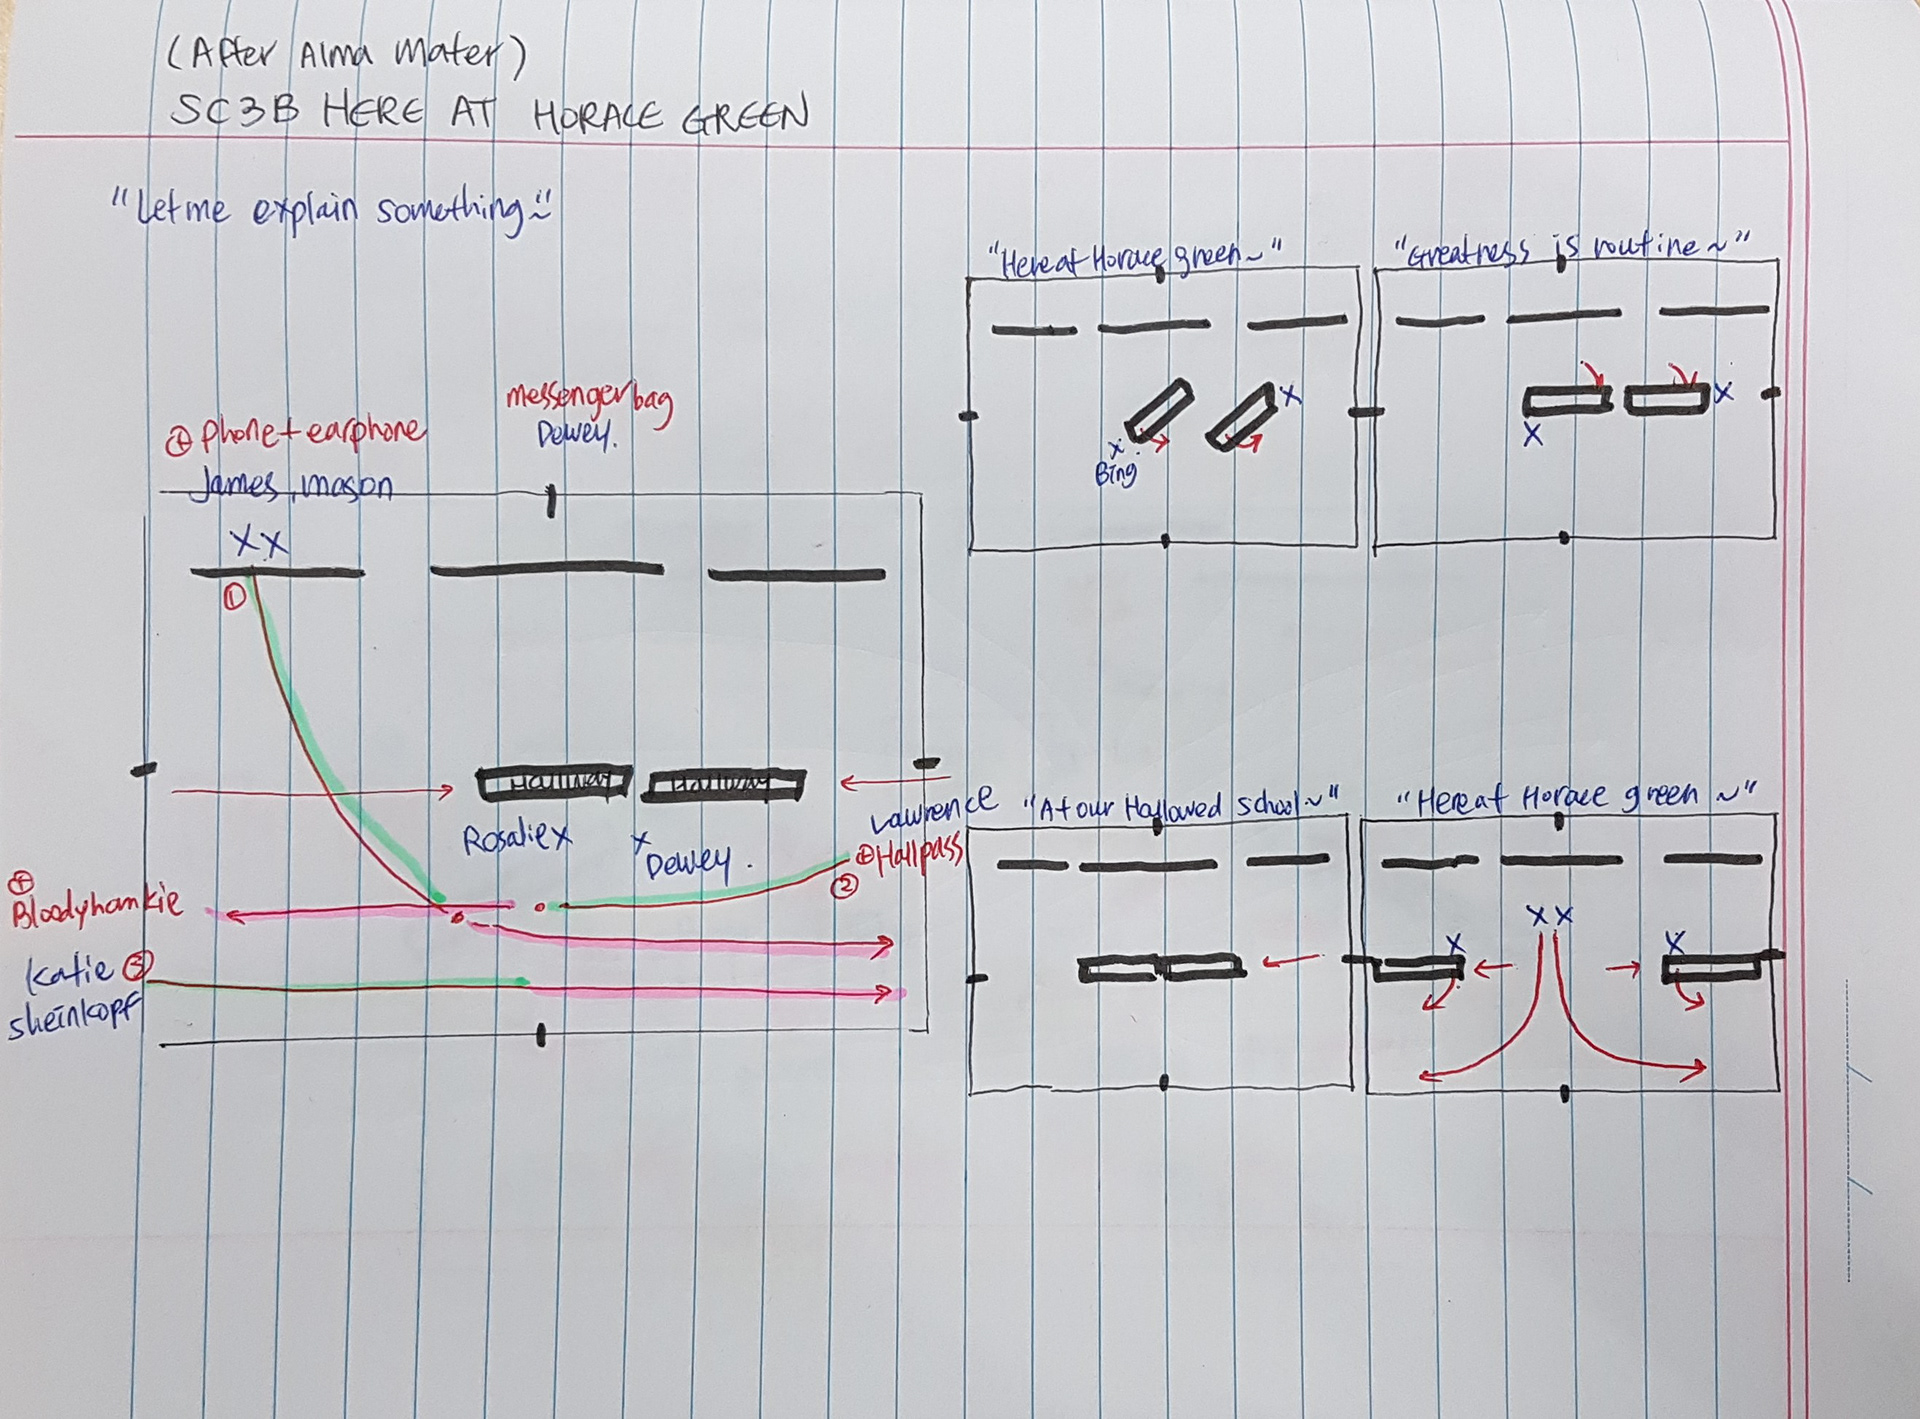 (After Alma Mater)
SC3B HERE AT HORACE GREEN
"Let me explain something~"
messenger bag
Dewey.
⊕ phone + earphone
James, mason
X X
①
Hallway Hallway
Rosalie X
X Dewey.
Lawrence
⊕ Hallpass
②
⊕
Bloodyhankie
Katie ③
sheinkopf
"Here at Horace green~"
X
X
Bing
"Greatness is routine~"
X
X
"At our Hallowed school~"
"Here at Horace green~"
X X
X X